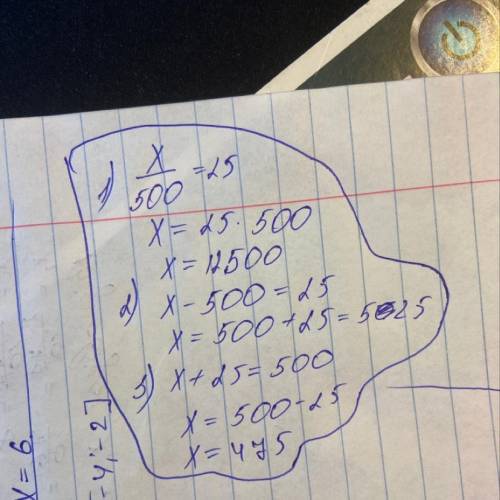 1) x/500 = 25
x = 25 · 500
x = 12500
2) x - 500 = 25
x = 500 + 25 = 525
3) x + 25 = 500
x = 500 - 25
x = 475
x = 6
-4; -2]